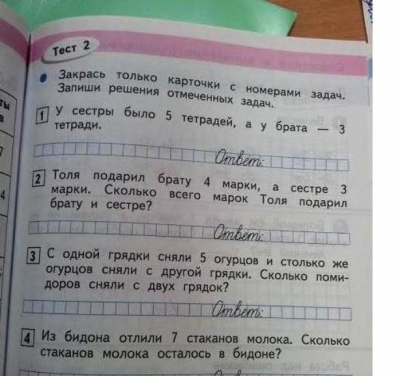 Тест 2
Закрась только карточки с номерами задач.
Запиши решения отмеченных задач.
1 У сестры было 5 тетрадей, а у брата — 3
тетради.
Ответ:
2 Толя подарил брату 4 марки, а сестре 3
марки. Сколько всего марок Толя подарил
брату и сестре?
Ответ:
3 С одной грядки сняли 5 огурцов и столько же
огурцов сняли с другой грядки. Сколько поми-
доров сняли с двух грядок?
Ответ:
4 Из бидона отлили 7 стаканов молока. Сколько
стаканов молока осталось в бидоне?